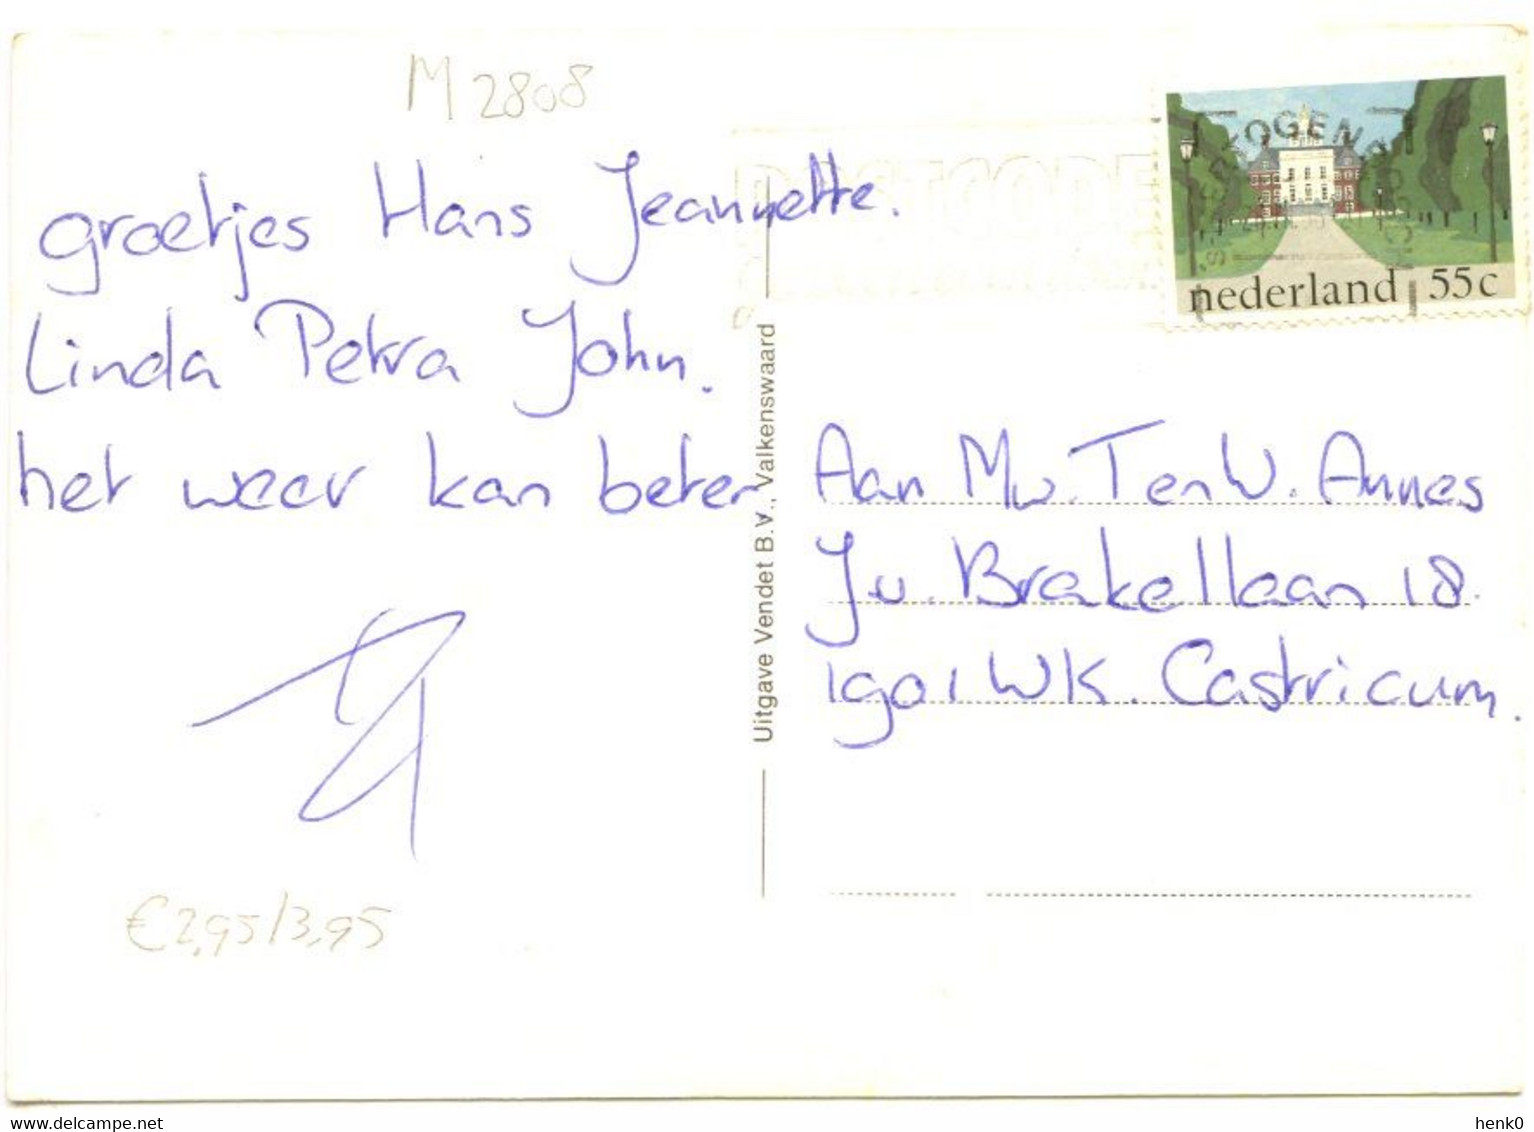 M 2808
groetjes Hans Jeannette.
Linda Petra John.
het weer kan beter
€2,95/3,95
Uitgave Vendet B.V., Valkenswaard
POSTCODE
nederland 55c
Aan Mw. Ten W. Annes
J.v. Brakellaan 18.
1901 WK. Castricum.
www.delcampe.net
henk0